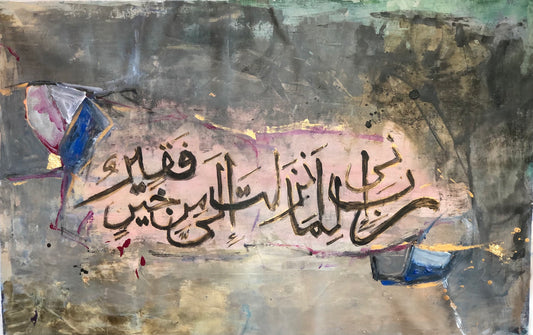 رب إني لِمَا أنزلتَ إِلَيَّ مِن خَيرٍ فَقِيرٌ